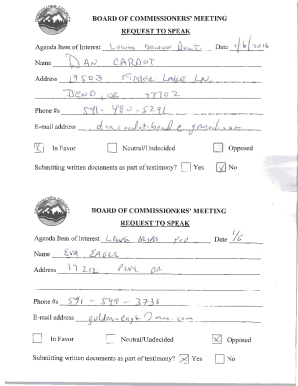 BOARD OF COMMISSIONERS' MEETING
REQUEST TO SPEAK
Agenda Item of Interest Date 1/6/2016
Name DAN CARDOT
Address 19503 LAKE LN.
BEND, OR 97702
Phone #s 541-480-5291
E-mail address
In Favor Neutral/Undecided Opposed
Submitting written documents as part of testimony? Yes No
BOARD OF COMMISSIONERS' MEETING
REQUEST TO SPEAK
Agenda Item of Interest Date 1/6
Name EVA EAGLE
Address 17212 PINE DR
Phone #s 541-549-3733
E-mail address
In Favor Neutral/Undecided Opposed
Submitting written documents as part of testimony? Yes No